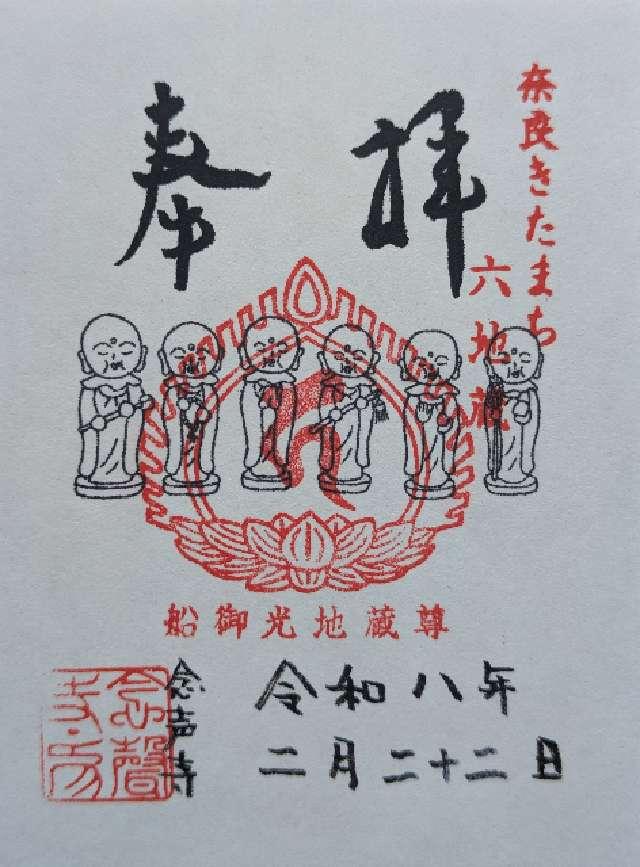 奉拝
奈良きたまち
六地蔵
船御光地蔵尊
令和八年
二月二十二日
念声寺
念聲寺印